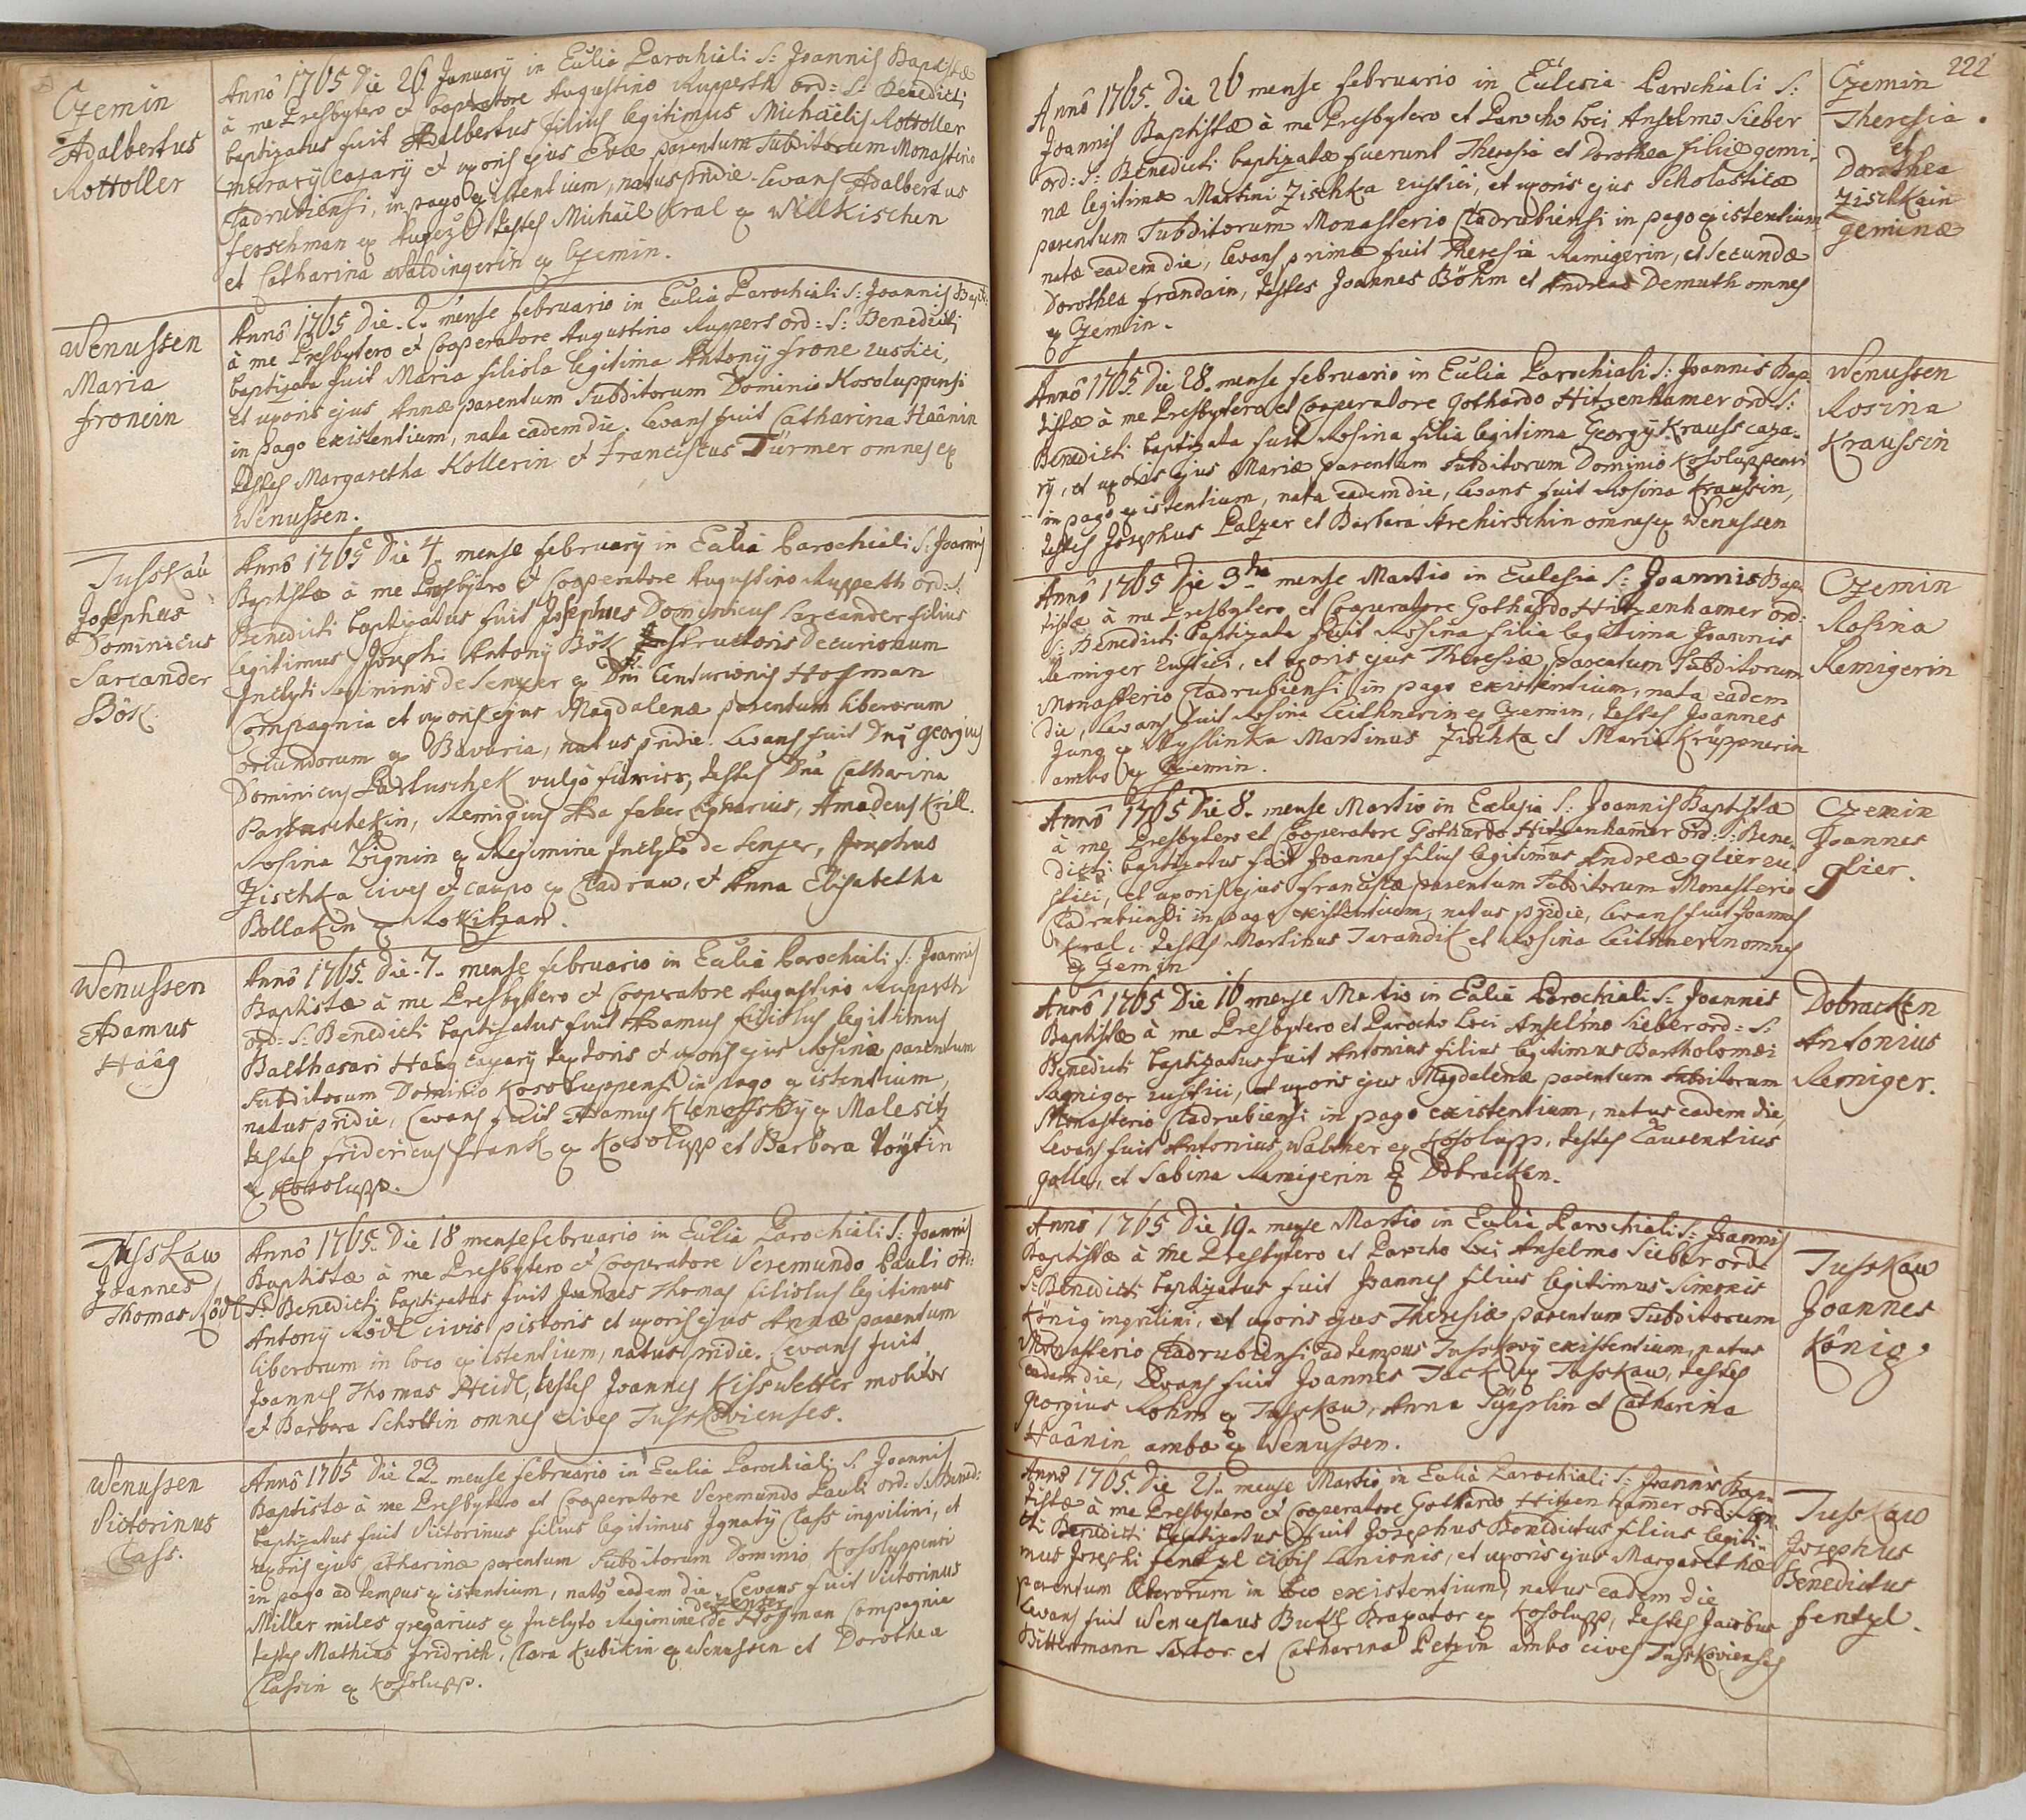 Czemin
Adalbertus
Kottoller
Annô 1765 Die 26 January in Eccłia Parochiali S: Joannis Baptistæ
à me Presbytero et Cooperatore Augustino Rupperth ord: S: Benedicti
baptizatus fuit Adalbertus filius legitimus Michäelis Kottoller
murarÿ casarÿ et uxoris ejus Evæ parentum Subditorum Monasterio
Cladrubiensi, in pago existentium, natus pridie. Levans Adalbertus
ferschman ex Aujezl, testes Michäel Kral ex Willkischen
et Catharina Waldingerin ex Czemin.
Wenussen
Maria
fronein
Annô 1765 Die 2. mense februario in Eccłia Parochiali S: Joannis Bapt:
à me Presbytero et Cooperatore Augustino Ruppert ord: S: Benedicti
baptizata fuit Maria filiola legitima Antonÿ frone rustici,
et uxoris ejus Annæ parentum Subditorum Dominio Kosoluppensi
in pago existentium, nata eadem die. Levans fuit Catharina Haânin
testes Margaretha Kollerin et Franciscus Türmer omnes ex
Wenussen.
Tusskau
Josephus
Dominicus
Sarcander
Bök
Annô 1765 Die 4. mense februarÿ in Eccłia Parochiali S: Joannis
Baptistæ à me Presbÿtero et Cooperatore Augustino Rupperth ord: S:
Benedicti baptizatus fuit Josephus Dominicus Sarcander filius
legitimus Josephi Antonÿ Bök Instructoris Decurionum
Inclyti Regiminis de Senzer ex Dni Centurionis Hofman
Compagnia et uxoris ejus Magdalenæ parentum liberorum
oriundorum ex Bavaria, natus pridie. Levans fuit Dnus Georgius
Dominicus vulgò testes Dna Catharina
Remigius faber lignarius, Amadeus Krill
Rosina Zignin ex Regimine Inclyto de Senzer, Josephus
Zischka cives et caupo ex Cladrau, et Anna Elisabetha
Bollakin ex Rokitzan.
Wenussen
Adamus
Haâg
Annô 1765. Die 7. mense februario in Eccłia Parochiali S: Joannis
Baptistæ à me Presbytero et Cooperatore Augustino Rupperth
ord: S: Benedicti baptizatus fuit Adamus filiolus legitimus
Balthasari Haâg casarÿ textoris et uxoris ejus Rosinæ parentum
Subditorum Dominio Kosoluppensi in pago existentium,
natus pridie, Levans fuit Adamus ex Malesitz
testes fridericus frank ex Kosolupp et Barbara Voÿtin
ex Kosolupp.
Tusskaw
Joannes
Thomas Rödl
Annô 1765. Die 18 mense februario in Eccłia Parochiali S: Joannis
Baptistæ à me Presbytero et Cooperatore Veremundo Pauli ord:
Sti Benedicti baptizatus fuit Joannes Thomas filiolus legitimus
Antonÿ Rödl civis pistoris et uxoris ejus Annæ parentum
liberorum in loco existentium, natus pridie. Levans fuit
Joannes Thomas Heidl, testes Joannes Kisswetter molitor
et Barbara Schottin omnes cives Tusskovienses.
Wenussen
Victorinus
Class.
Annô 1765 Die 23 mense februario in Eccłia Parochiali S: Joannis
Baptistæ à me Presbytero et Cooperatore Veremundo Pauli ord: S: Bened:
baptizatus fuit Victorinus filius legitimus Ignatÿ Class inquilini, et
uxoris ejus Catharinæ parentum Subditorum Dominio Kosoluppensi
in pago ad tempus existentium, natus eadem die. Levans fuit Victorinus
De Zenser
Miller miles gregarius ex Inclyto Regimine de Hofman Compagnia
testes Mathias fridrich, Clara Kubikin ex Wenussen et Dorothea
Classin ex Kosolupp.
222
Annô 1765. Die 26 mense februario in Ecclesia Parochiali S:
Joannis Baptistæ à me Presbytero et Parocho loci Anselmo Sieber
ord: S: Benedicti baptizatæ fuerunt Theresia et Dorothea filiæ gemi-
næ legitimæ Martini Zischka rustici, et uxoris ejus Scholasticæ
parentum Subditorum Monasterio Cladrubiensi in pago existentium
natæ eadem die, Levans primæ fuit Theresia Remigerin, et secundæ
Dorothea frandain, testes Joannes Böhm et Andreas Demuth omnes
ex Czemin.
Czemin
Theresia
et
Dorothea
Zischkain
geminæ
Annô 1765 Die 28. mense februario in Eccłia Parochiali S: Joannis Bap-
tistæ à me Presbytero et Cooperatore Gothardo Hitzenhamer ord: S:
Benedicti baptizata fuit Rosina filia legitima Georgÿ Krauss casa-
rÿ, et uxoris ejus Mariæ parentum Subditorum Dominio Kosoluppensi
in pago existentium, nata eadem die, Levans fuit Rosina Krausin,
testes Josephus Palzer et Barbara Strehirschin omnes ex Wenussen
Wenussen
Rosina
Kraussin
Annô 1765 Die 3tia mense Martio in Ecclesia S: Joannis Bap-
tistæ à me Presbytero et Cooperatore Gothardo Hitzenhamer ord:
S: Benedicti baptizata fuit Rosina filia legitima Joannis
Remiger rustici, et uxoris ejus Theresiæ parentum Subditorum
Monasterio Cladrubiensi in pago existentium, nata eadem
die, Levans fuit Rosina Leithnerin ex Czemin, testes Joannes
Jung ex Myslinka Martinus Zischka et Maria Krüppnerin
ambo ex Czemin.
Czemin
Rosina
Remigerin
Annô 1765 Die 8. mense Martio in Ecclesia S: Joannis Baptistæ
à me Presbytero et Cooperatore Gothardo Hitzenhamer ord: S: Bene-
dicti baptizatus fuit Joannes filius legitimus Andreæ glier ru-
stici, et uxoris ejus franciscæ parentum Subditorum Monasterio
Cladrubiensi in pago existentium, natus pridie, Levans fuit Joannes
Kral, testes Martinus Tarandik et Rosina Leithnerin omnes
ex Czemin
Czemin
Joannes
glier.
Annô 1765 Die 16 mense Martio in Eccłia Parochiali S: Joannis
Baptistæ à me Presbytero et Parocho Loci Anselmo Sieber ord: S:
Benedicti baptizatus fuit Antonius filius legitimus Bartholomæi
Remiger rustici, et uxoris ejus Magdalenæ parentum Subditorum
Monasterio Cladrubiensi in pago existentium, natus eadem die,
Levans fuit Antonius Walther ex Kosolupp, testes Laurentius
Galle, et Sabina Remigerin ex Dobracken.
Dobracken
Antonius
Remiger.
Annô 1765 Die 19. mense Martio in Eccłia Parochiali S: Joannis
Baptistæ à me Presbytero et Parocho Loci Anselmo Sieber ord:
S: Benedicti baptizatus fuit Joannes filius legitimus Simonis
König inquilini, et uxoris ejus Theresiæ parentum Subditorum
Monasterio Cladrubiensi ad tempus Tusskovÿ existentium, natus
eadem die, Levans fuit Joannes Tack ex Tusskau, testes
Georgius Rohm ex Tusskau, Anna Tüpplin et Catharina
Haânin ambæ ex Wenussen.
Tusskau
Joannes
König.
Annô 1765. Die 21. mense Martio in Eccłia Parochiali S: Joannis Bap-
tistæ à me Presbytero et Cooperatore Gothardo Hitzenhamer ord: San-
cti Benedicti baptizatus fuit Josephus Benedictus filius legiti-
mus Josephi fentzl civis Lanionis, et uxoris ejus Margarethæ
parentum liberorum in loco existentium, natus eadem die
Levans fuit Wenceslaus Buttl Braxator ex Kosolupp, testes Jacobus
Bittermann Sartor et Catharina Petzin ambo cives Tusskovienses
Tusskau
Josephus
Benedictus
fentzl.